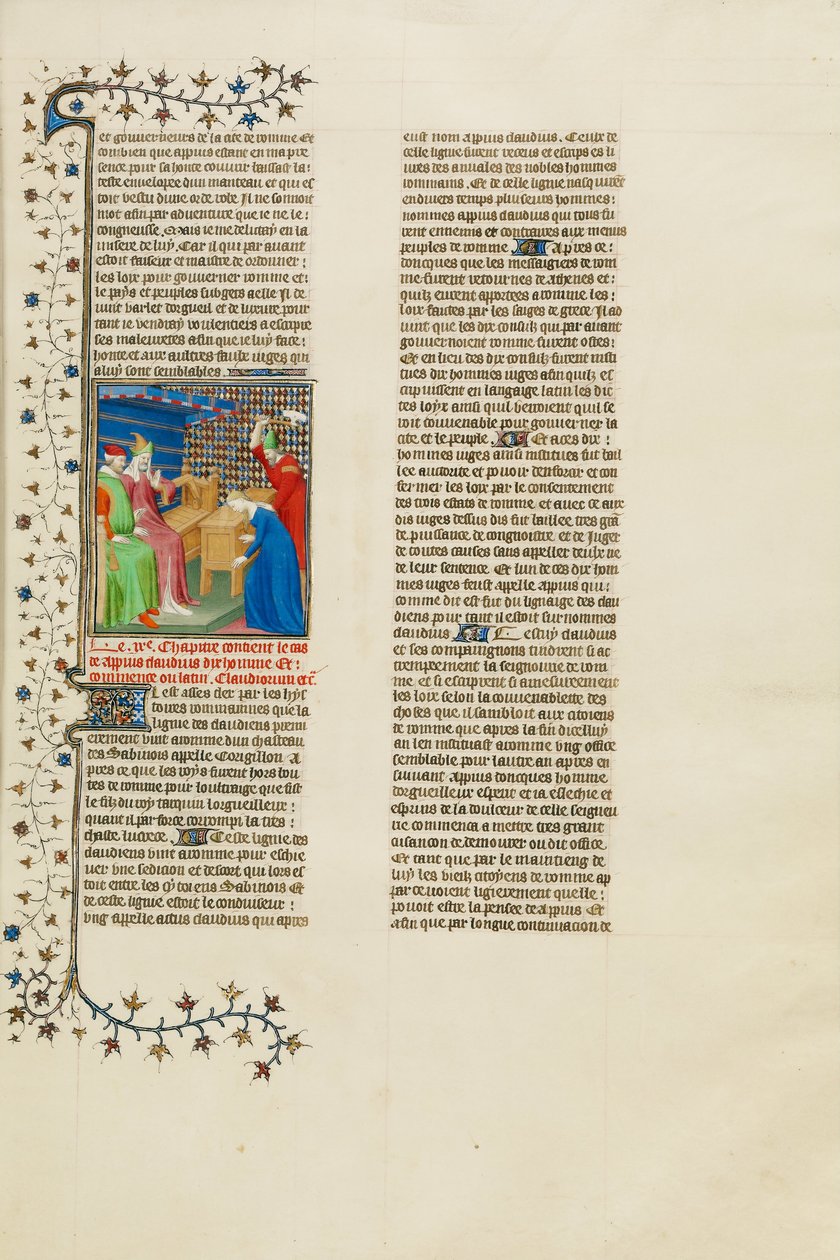 et gouverneurs de la cite de romme Et
combien que appius estant en ma pre
sence pour sa honte couvrir laissast la:
teste envelopee dun manteau et qui es
toit vestu dune orde robe Il ne sonnoit
mot afin par adventure que ie ne le:
congneusse. Mais ie me delictay en la
misere de luy. Car il qui par avant
estoit faiseur et maistre de ordonner:
les loix pour gouverner romme et:
le pays et peuples subgets a elle Il de
vint varlet dorgueil et de luxure pour
tant ie vendray voulentiers a escripre
ses maleuretes afin que ie luy face:
honte et aux aultres faulx iuges qui
a luy sont semblables.
Le. iii.e Chapitre contient le cas
de Appius claudius dix homme Et:
commence ou latin. Claudiorum etc.
Il est asses cler par les hys
toires rommainnes que la
ligne des claudiens premi
erement vint a romme dun chasteau
des Sabinois appelle Corigillon A
pres ce que les roys furent hors bou
tes de romme pour loultraige que fist
le filz du roy tarquin lorgueilleux:
quant il par force corrompi la tres:
chaste lucrece. Ceste ligne des
claudiens vint a romme pour eschie
ver une sedicion et descort qui lors es
toit entre les cytoiens Sabinois Et
de ceste ligne estoit le conduiseur:
ung appelle actus claudius qui apres
eust nom appius claudius. Ceulx de
celle ligne furent receus et escrips es li
ures des annales des nobles hommes
rommains. Et de celle ligne nasquirent
en divers temps pluseurs hommes:
nommes appius claudius qui tous fu
rent ennemis et contraires aux menus
peuples de romme Apres ce:
doncques que les messaigiers de rom
me furent retournes de athenes et:
quilz eurent apportees a romme les:
loix faictes par les saiges de grece Il ad
vint que les dix consulz qui par avant
gouvernoient romme furent ostes:
Et en lieu des dix consulz furent insti
tues dix hommes iuges afin quilz es
cripvissent en langaige latin les dic
tes loyx ainsi quil verroient quil se
roit convenable pour gouverner la
cite et le peuple. Et a ces dix:
hommes iuges ainsi institues fut bail
lee auctorite et povoir denforcir et con
fermer les loix par le consentement
des trois estats de romme et avec ce aux
dis iuges dessus dis fut baillee tres grant
de puissance de congnoistre et de Juger
de toutes causes sans appeller deulx ne
de leur sentence. Et lun de ces dix hom
mes iuges feust appelle appius qui:
comme dit est fut du lignaige des clau
diens pour tant il estoit surnommes
claudius Cestuy claudius
et ses compaignons tindrent si at
trempeement la seignourie de rom
me et si escriprent si amesureement
les loix selon la convenablette des
choses que il sambloit aux citoiens
de romme que apres la fin dicelluy
an len instituast a romme ung office
semblable pour lautre an apres en
suivant Appius doncques homme
dorgueilleux esperit et ia esleschie et
esprins de la doulceur de celle seigneu
rie commenca a mettre tres grant
cusancon de demourer ou dit office
Et tant que par le maintieng de
luy les vieilz citoyens de romme ap
parcevoient ligierement quelle:
povoit estre la pensee de Appius Et
afin que par longue continuacion de